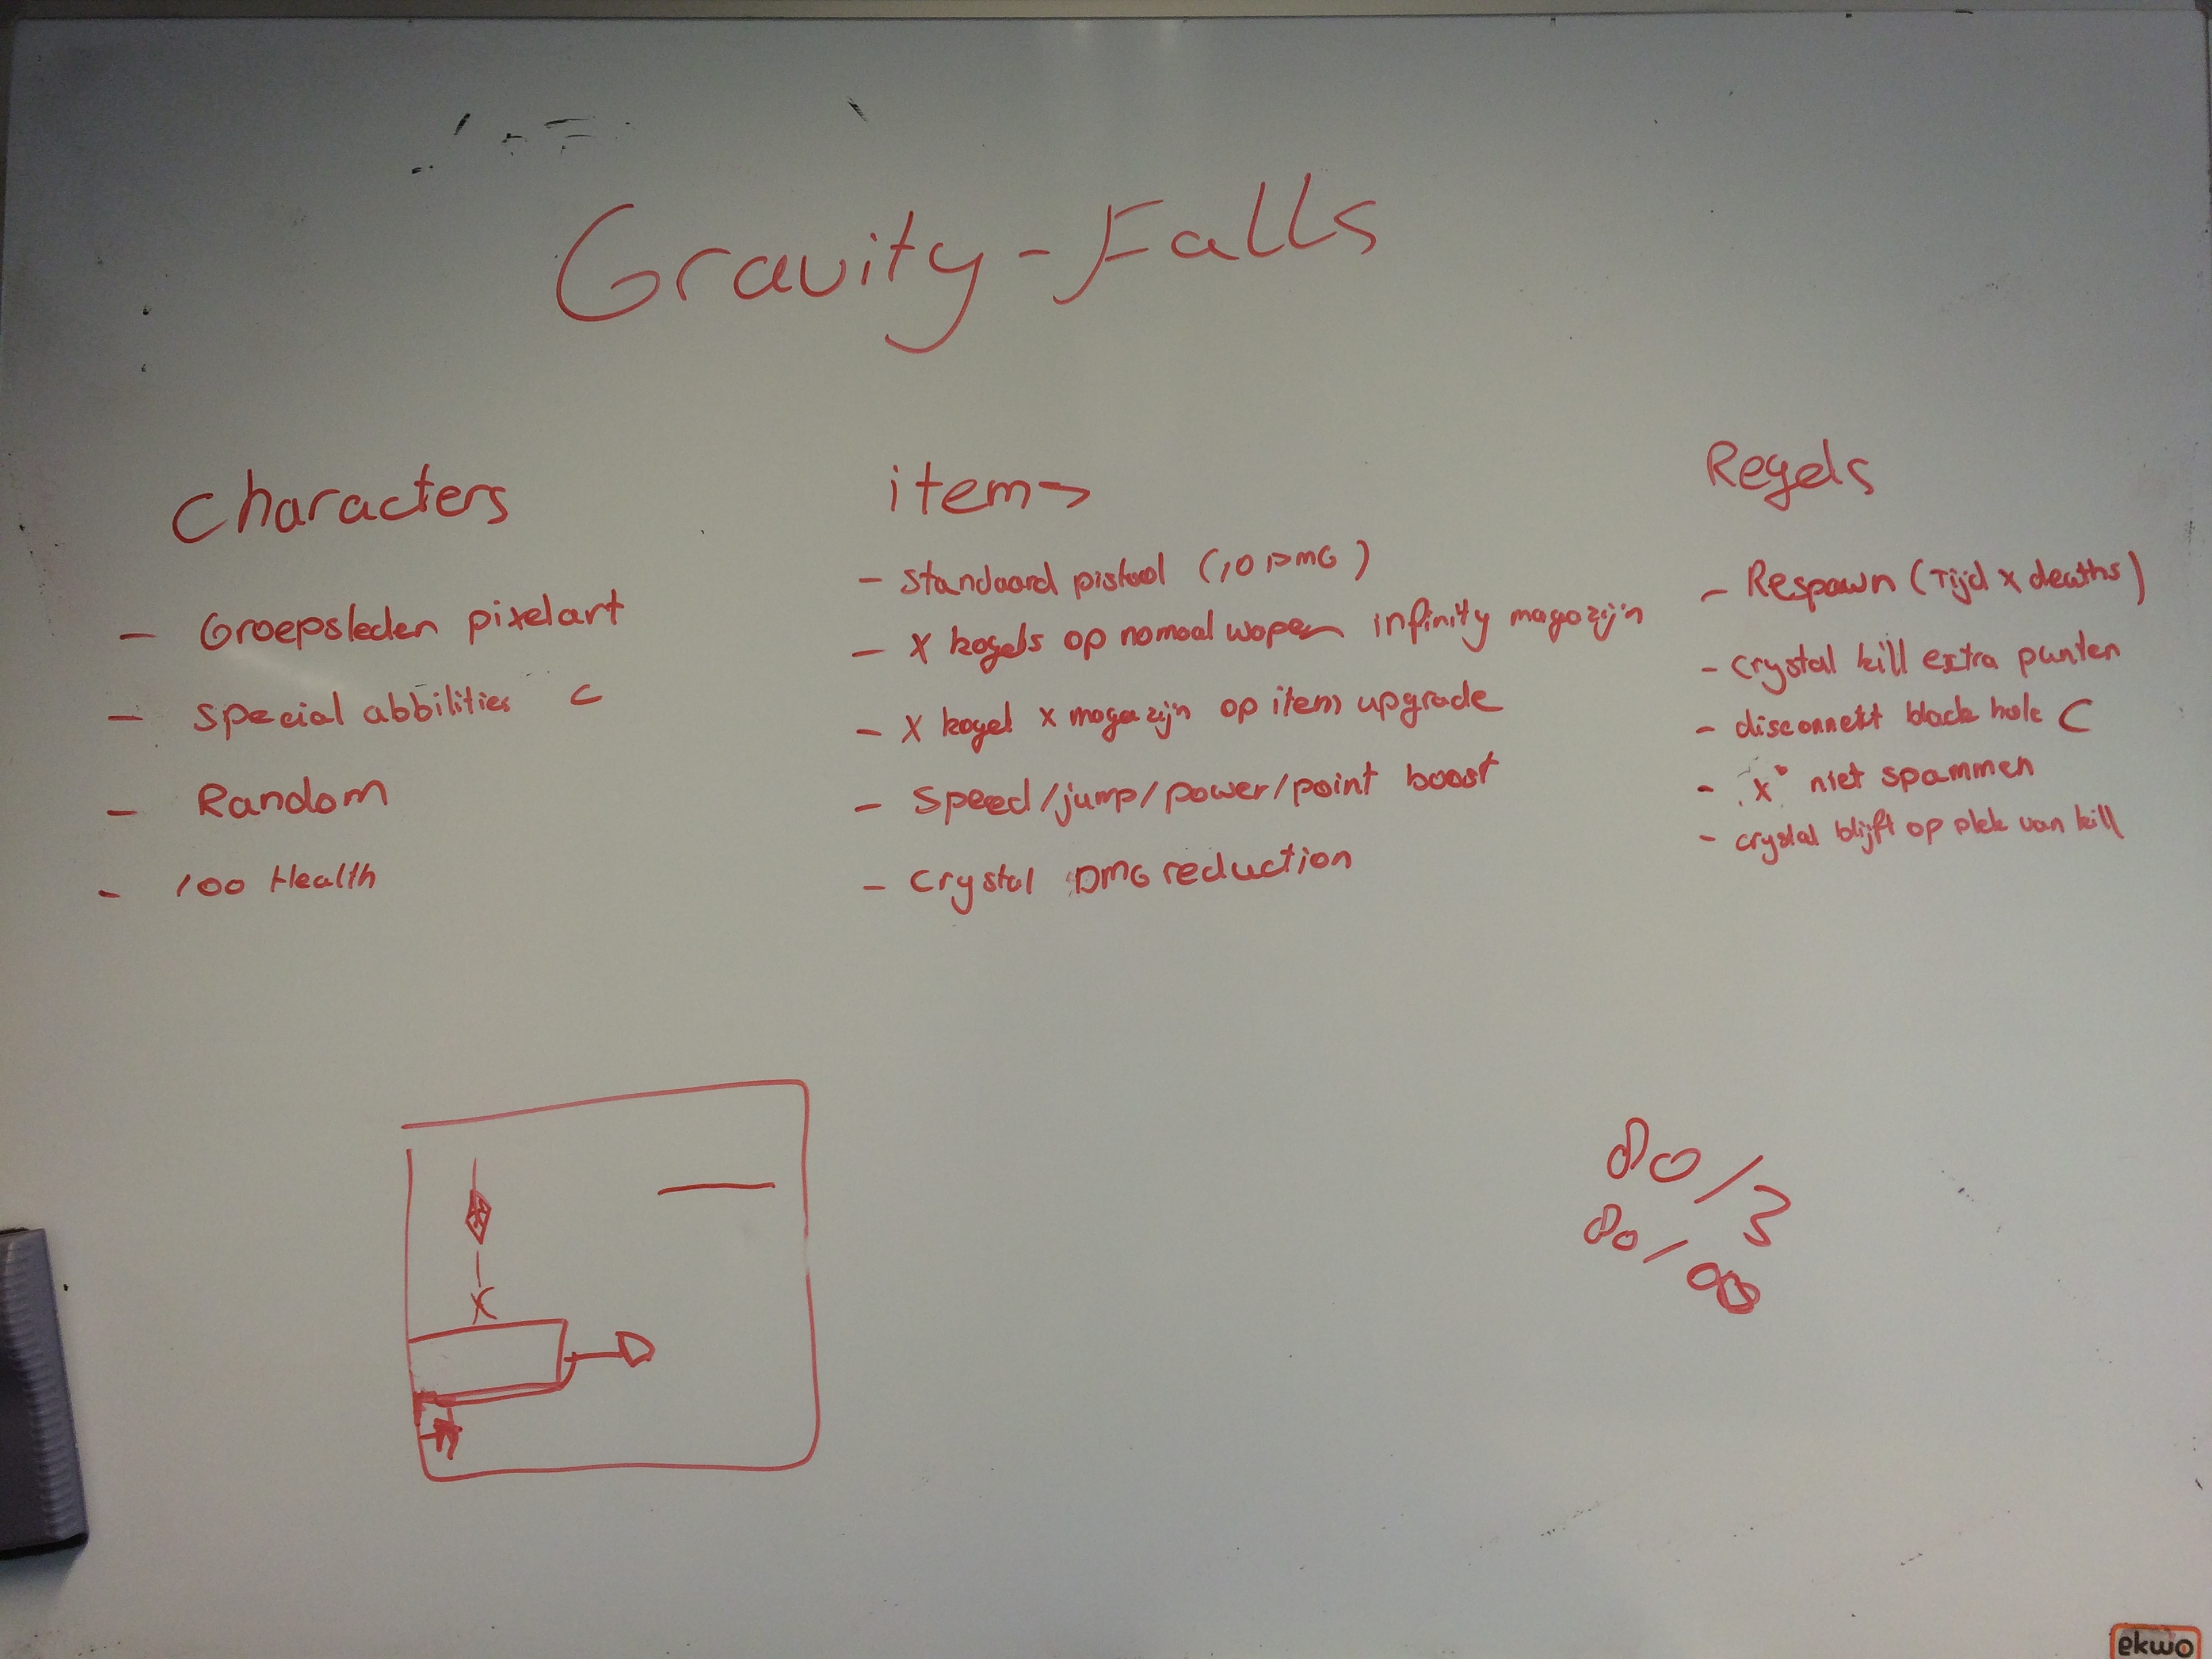 Gravity-Falls
Characters
- Groepsleden pixelart
- Special abbilities C
- Random
- 100 Health
items
- standaard pistool (10 DMG)
- X kogels op nomaal wapen infinity magazijn
- X kogel x magazijn op item upgrade
- Speed/jump/power/point boost
- Crystal DMG reduction
Regels
- Respawn (Tijd x deaths)
- crystal kill extra punten
- disconnect black hole C
- "x" niet spammen
- crystal blijft op plek van kill
80/3
80/∞
X
ekwo